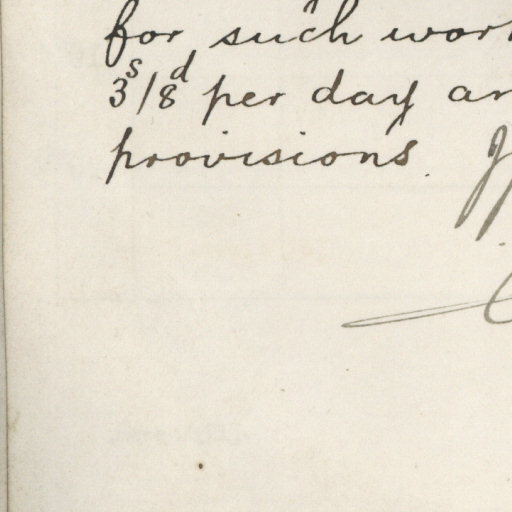 for such wor
3s/8d per day an
provisions.